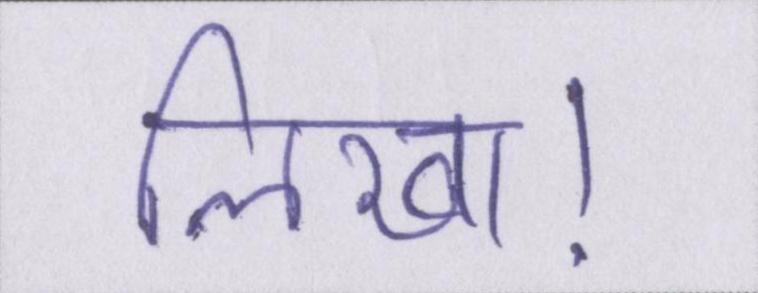 लिखा!